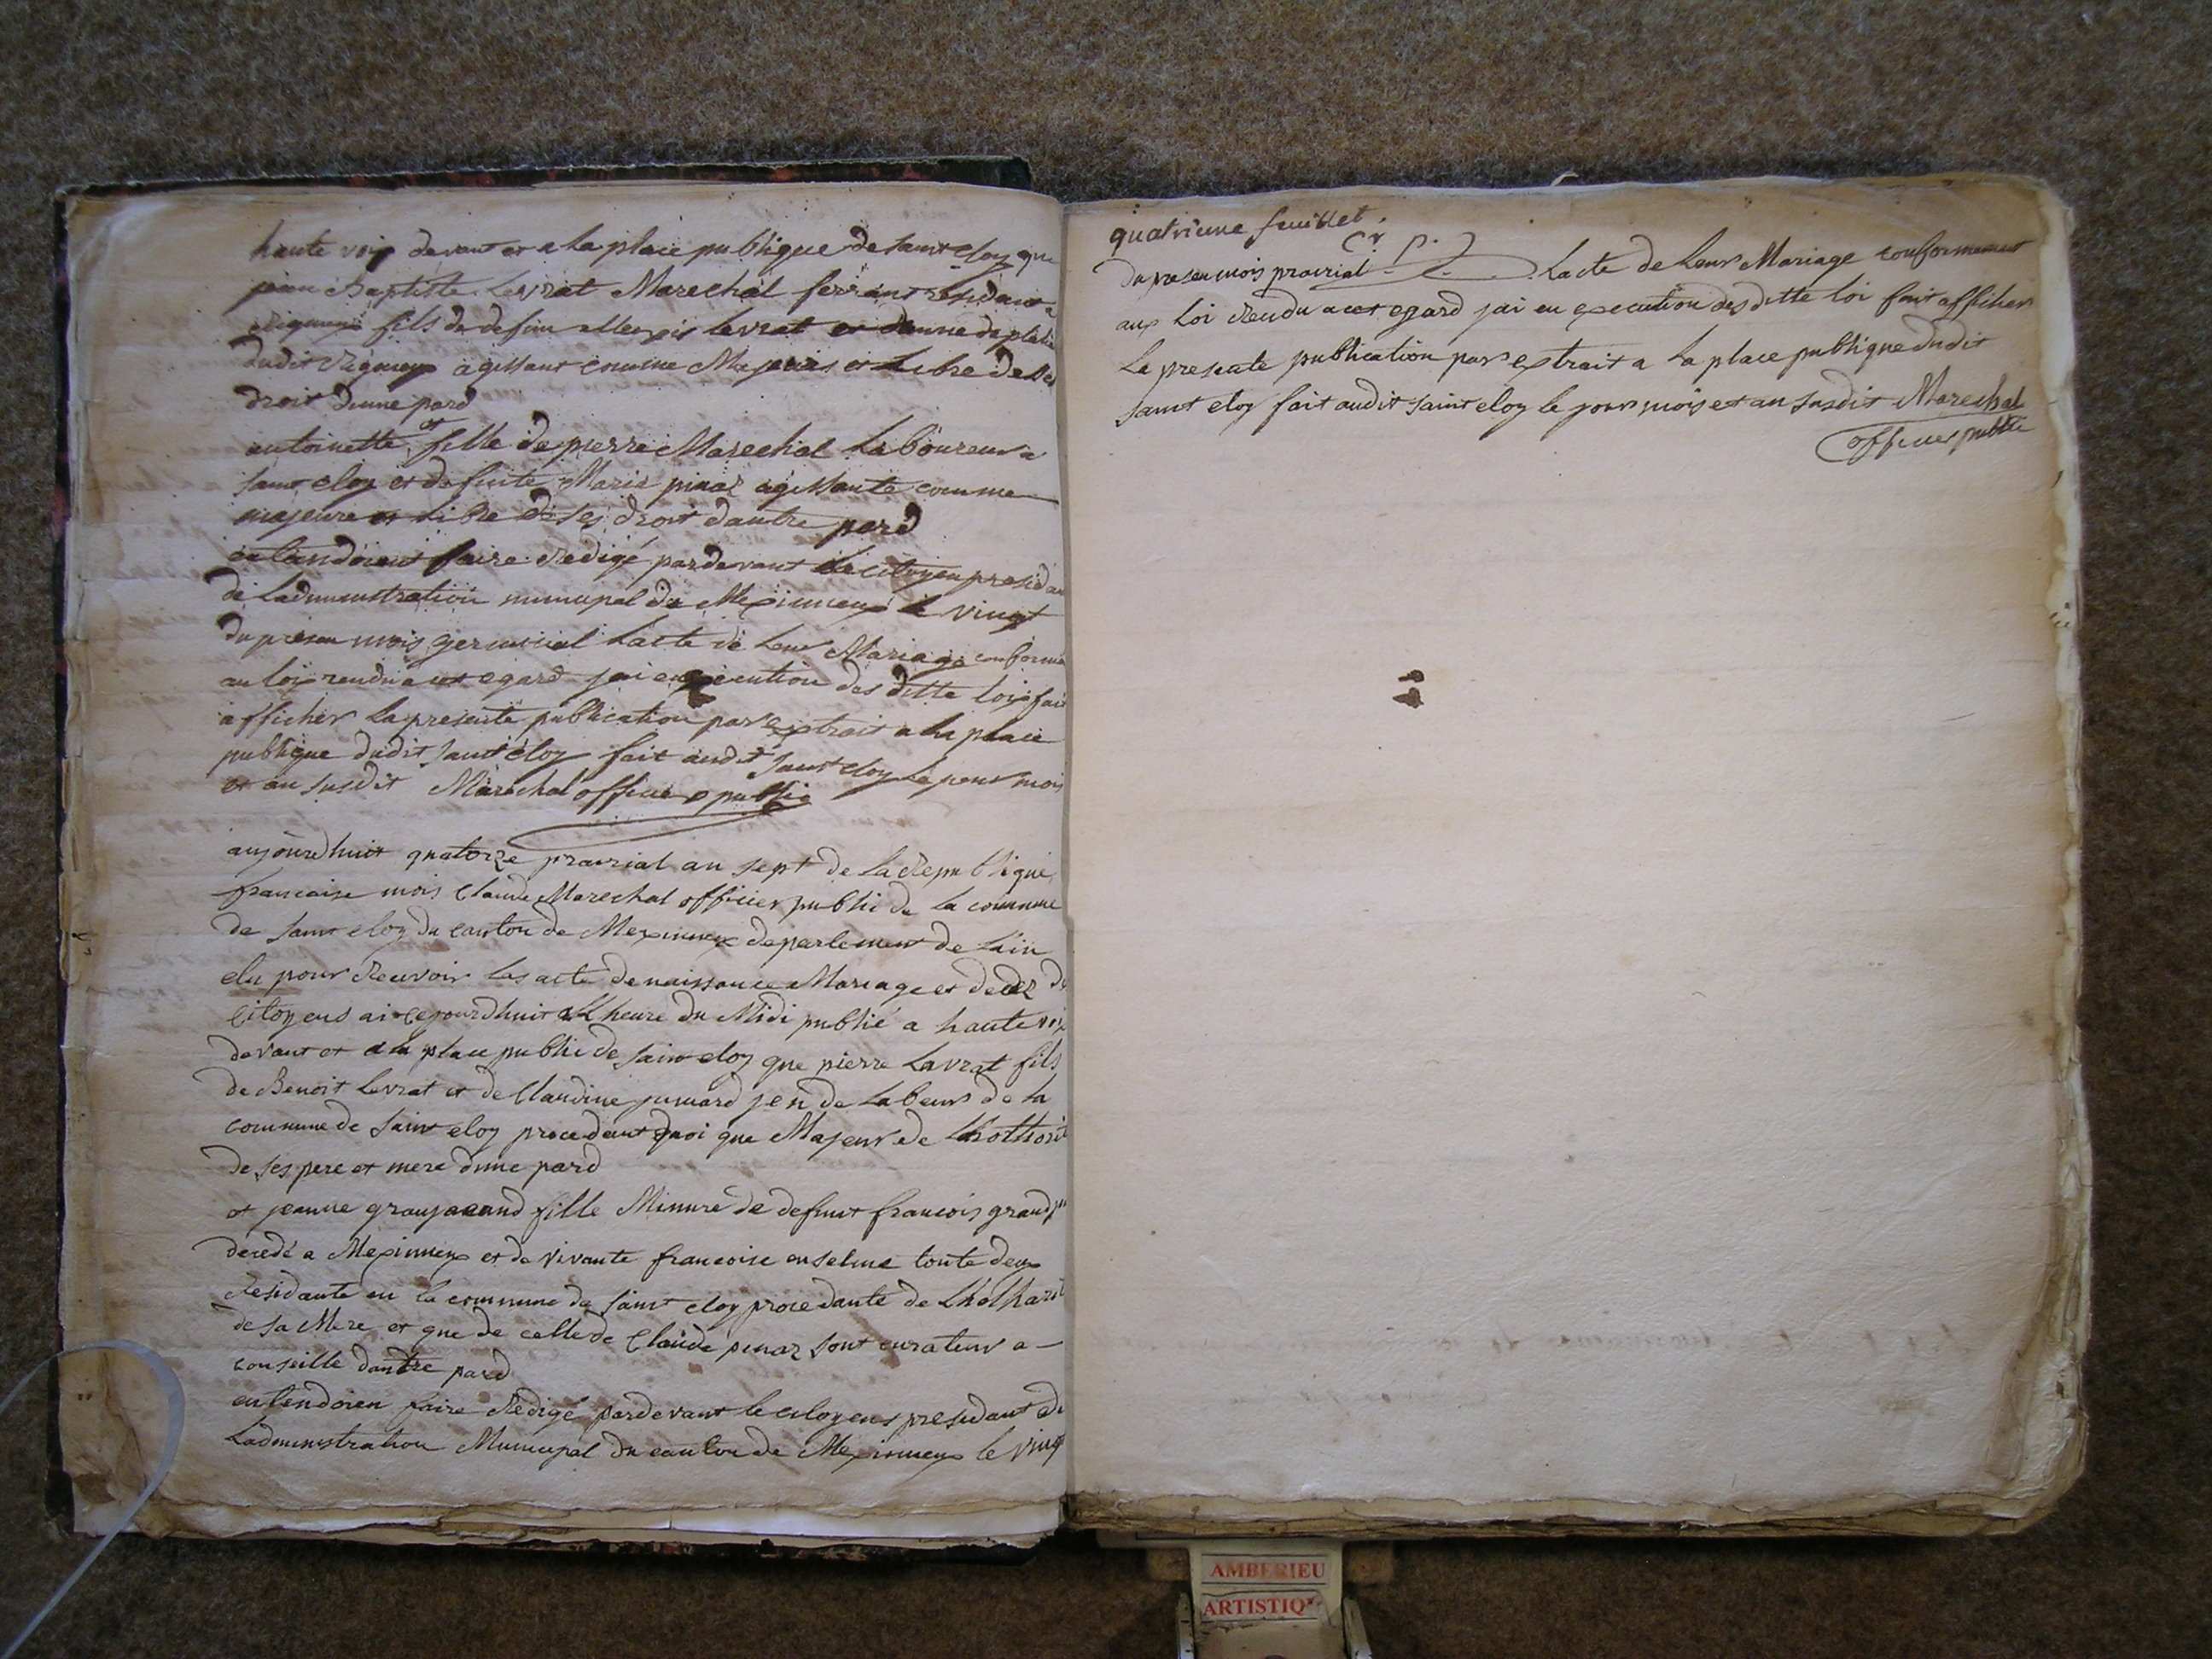 haute voix devant et a la place publique de saint eloy que
jean Baptiste Levrat Marechal ferrant residant a
rigneux fils de defun levrat et
dudit rigneux agissant comme Majeur et Libre de ses
droit dune pard
et
antoinette fille de pierre Marechal Laboureur a
saint eloy et defunte Marie pinaz agissante comme
majeure et Libre de ses droit dautre pard
entandoient faire redigé pardevant le citoyen presidan
de Ladministration municipal de Meximieux le vingt
du presen mois germinial Lacte de Leur Mariage conforme
au loix rendu a cet egard jai en execution des ditte loix fait
afficher La presente publication par extrait a la place
publique dudit saint eloy fait audit saint eloy le jour mois
et an susdit Marechal officier public
aujourdhuit quatorze prairial an sept de la Republique
francaise mois Claude Marechal officier public de la commune
de saint eloy du canton de Meximieux departement de Lain
elu pour recevoir les acte de naissance Mariage et decez de
Citoyens ai cejourdhuit a Lheure du Midi publié a haute voix
devant et a la place public de saint eloy que pierre Lavrat fils
de Benoit Levrat et de Claudine jumard jen de Labeur de la
commune de saint eloy procedant quoi que Majeur de Lhothorit
de ses pere et mere dune pard
et jeanne granjacand fille Minure de defunt francois grand
decedé a Meximieux et de vivante francoise anselme toute deux
residante en la commune de saint eloy procedante de Lhothorit
de sa Mere et que de celle de Claude pinaz sont curateur a -
conseille dautre pard
entendoien faire redigé pardevant le citoyens presidant de
Ladministration Municipal du canton de Meximieux le vingt
quatrieme feuillet.
du presen mois prairial Lacte de Leur Mariage conformement
aux Loi rendu a cet egard jai en execution des ditte loi fait afficher
La presente publication par extrait a La place publique dudit
saint eloy fait audit saint eloy le jour mois et an susdit Marechal
officier public
AMBERIEU
ARTISTIQ